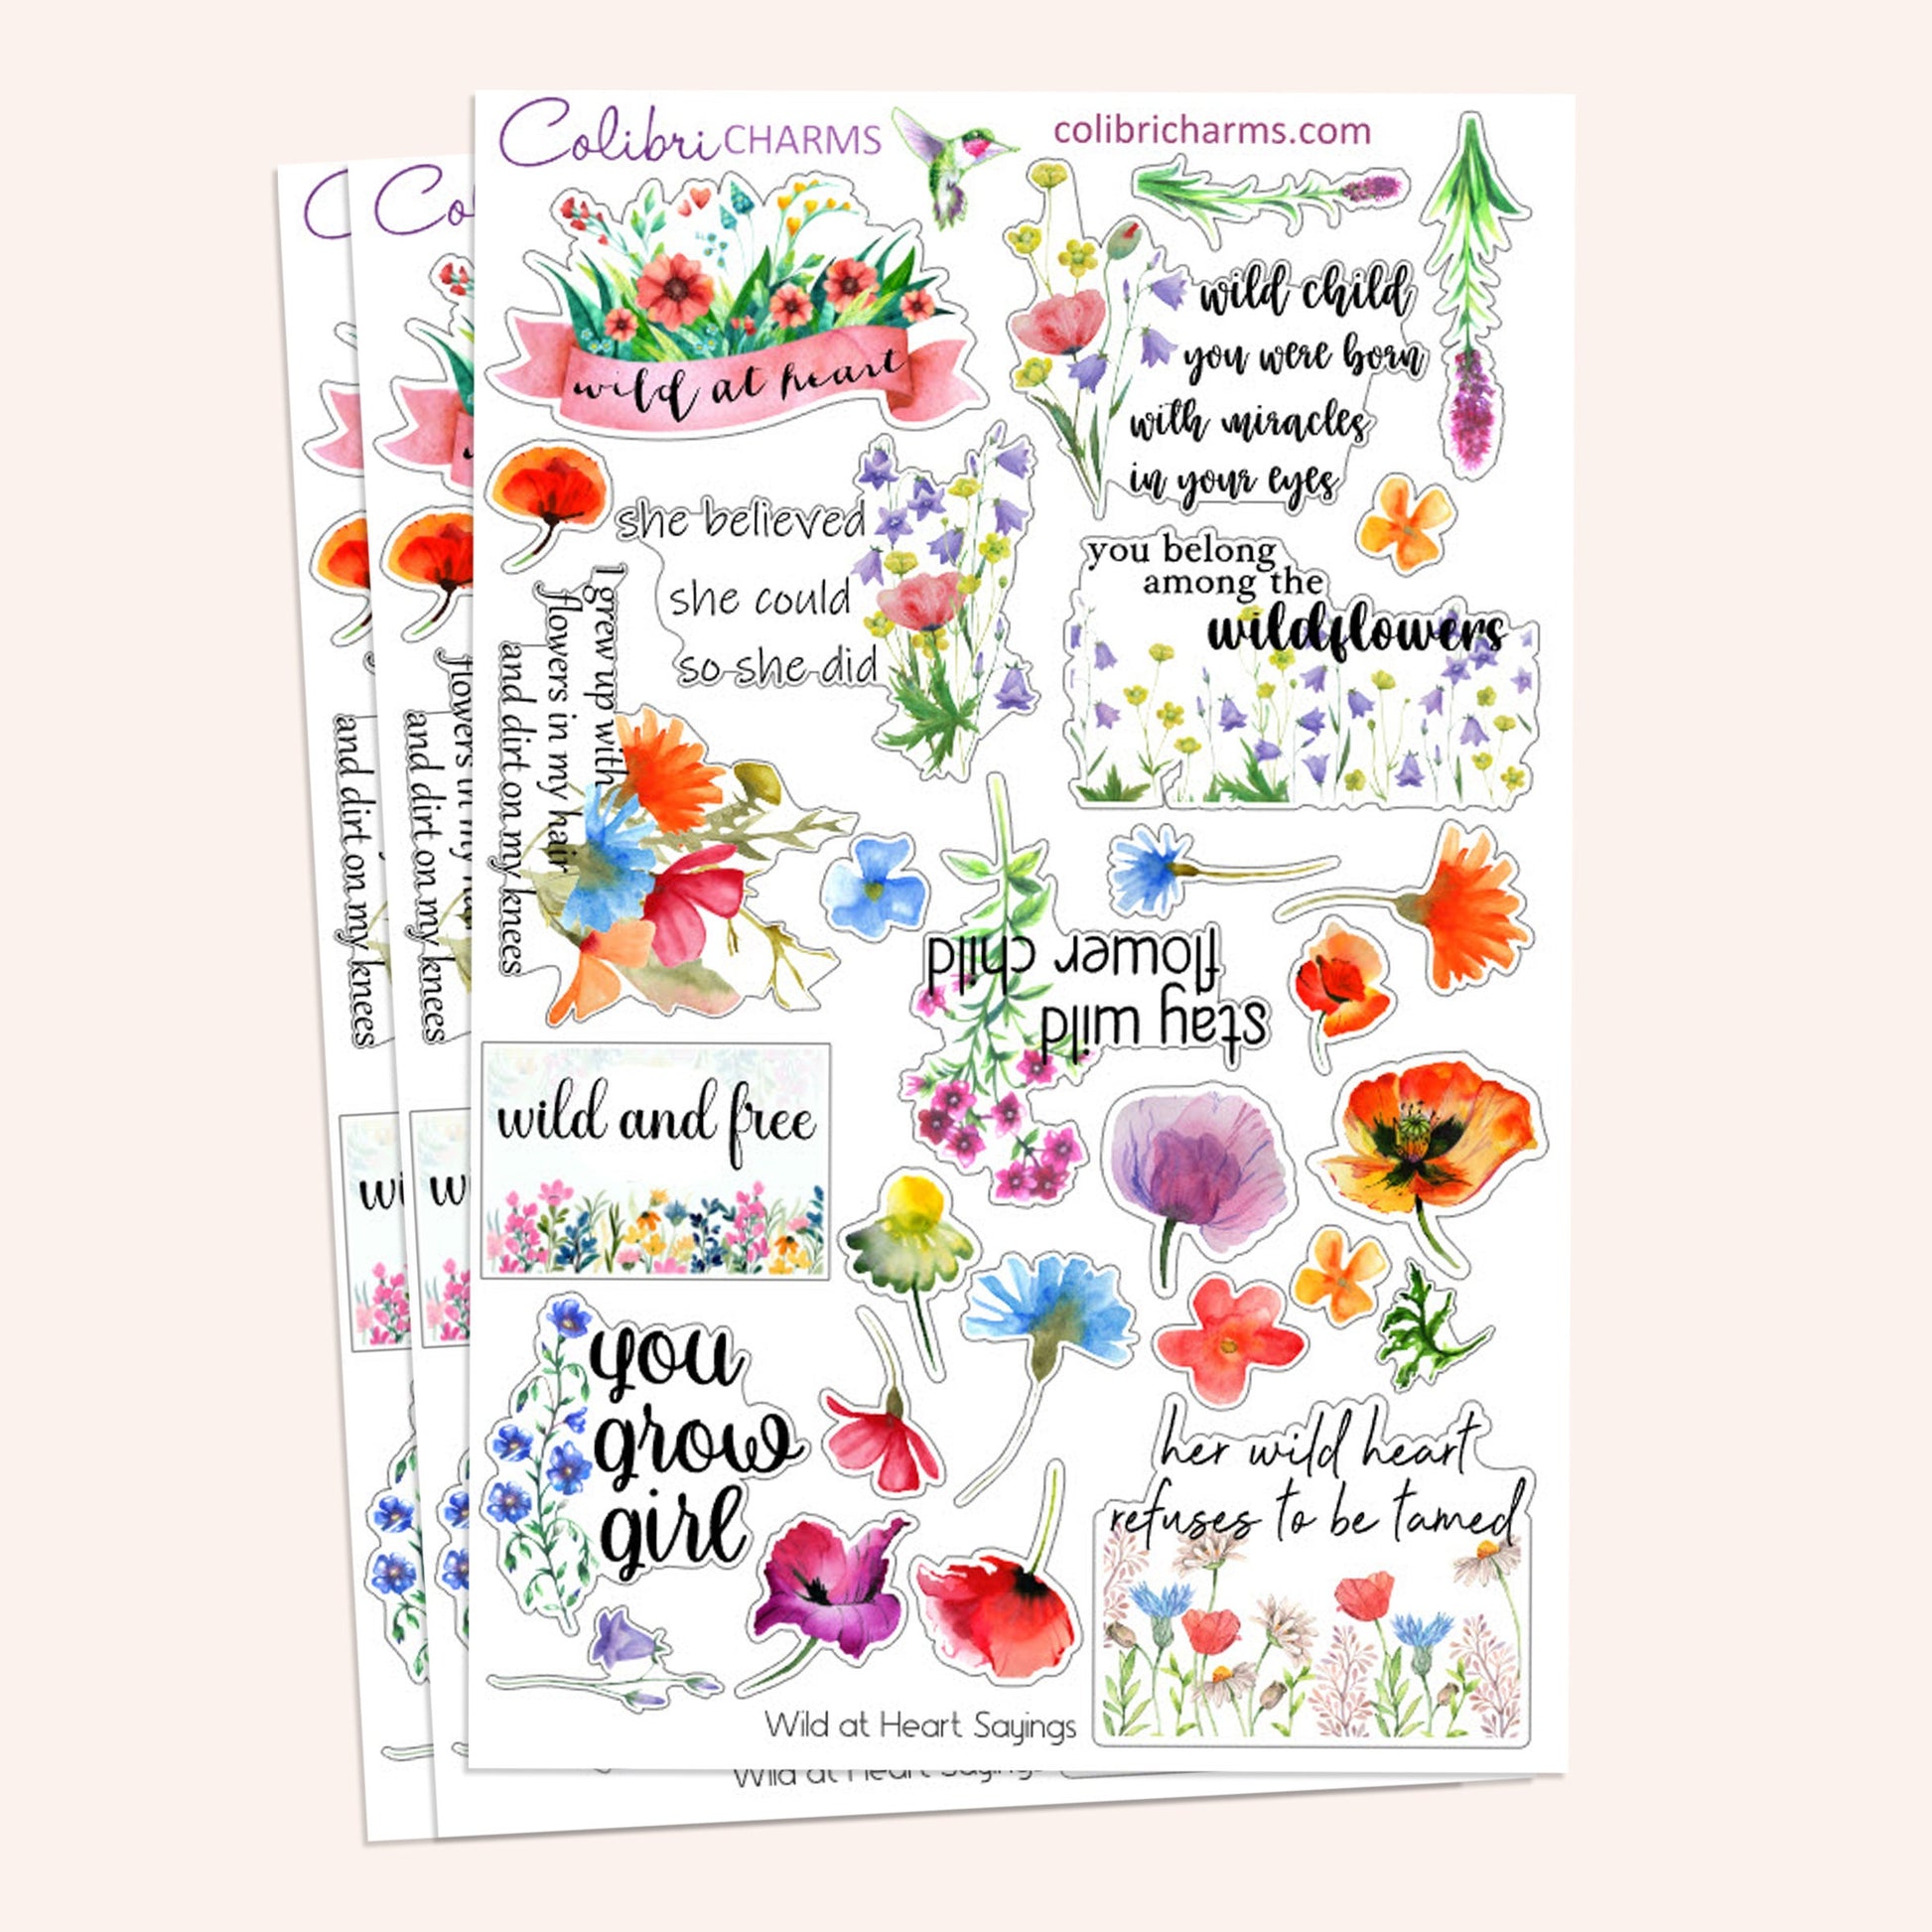 Colibri CHARMS
colibricharms.com
wild at heart
wild child
you were born
with miracles
in your eyes
she believed
she could
so she did
you belong
among the
wildflowers
I grew up with
flowers in my hair
and dirt on my knees
stay wild
flower child
wild and free
you
grow
girl
her wild heart
refuses to be tamed
Wild at Heart Sayings
C
Co
flowers in my hair
and dirt on my knees
and dirt on my knees
wi
w
Wild at Heart Sayings